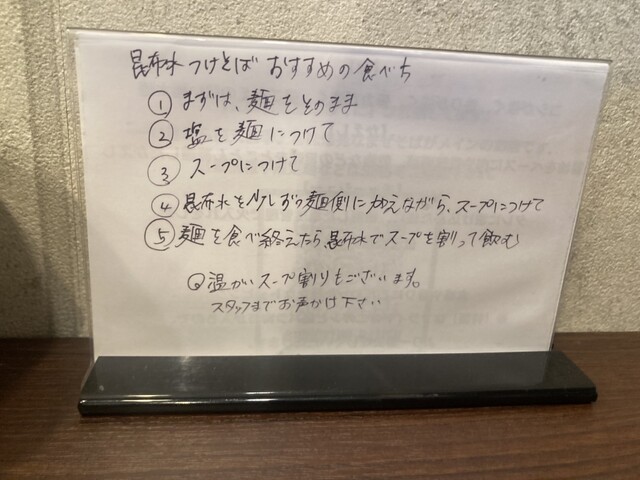 昆布水つけそば おすすめの食べち
① まずは、麺をそのまま
② 塩を麺につけて
③ スープにつけて
④ 昆布水を少しずつ麺側に加えながら、スープにつけて
⑤ 麺を食べ終えたら、昆布水でスープを割って飲む
◎温かいスープ割りもございます。
スタッフまでお声かけ下さい